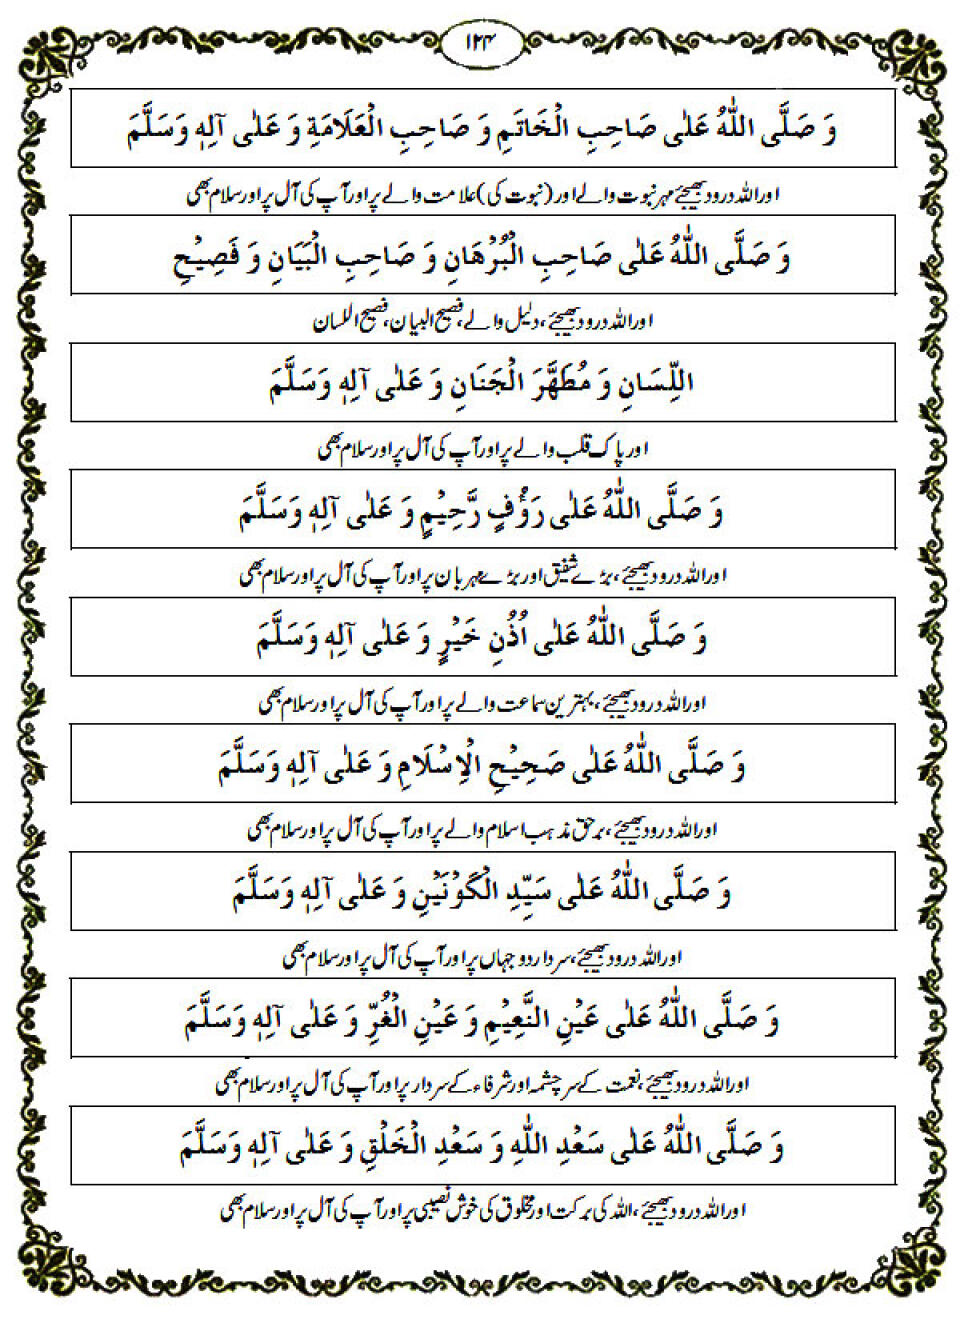 ۱۲۴
وَ صَلَّی اللّٰہُ عَلٰی صَاحِبِ الْخَاتَمِ وَ صَاحِبِ الْعَلَامَةِ وَ عَلٰی آلِہٖ وَسَلَّمَ
اور اللہ درود بھیجئے مہر نبوت والے اور (نبوت کی) علامت والے پر اور آپ کی آل پر اور سلام بھی
وَ صَلَّی اللّٰہُ عَلٰی صَاحِبِ الْبُرْھَانِ وَ صَاحِبِ الْبَیَانِ وَ فَصِیْحِ
اور اللہ درود بھیجئے، دلیل والے، فصیح البیان، فصیح اللسان
اللِّسَانِ وَ مُطَھَّرَ الْجَنَانِ وَ عَلٰی آلِہٖ وَسَلَّمَ
اور پاک قلب والے پر اور آپ کی آل پر اور سلام بھی
وَ صَلَّی اللّٰہُ عَلٰی رَؤُفٍ رَّحِیْمٍ وَ عَلٰی آلِہٖ وَسَلَّمَ
اور اللہ درود بھیجئے، بڑے شفیق اور بڑے مہربان پر اور آپ کی آل پر اور سلام بھی
وَ صَلَّی اللّٰہُ عَلٰی اُذُنِ خَیْرٍ وَ عَلٰی آلِہٖ وَسَلَّمَ
اور اللہ درود بھیجئے، بہترین سماعت والے پر اور آپ کی آل پر اور سلام بھی
وَ صَلَّی اللّٰہُ عَلٰی صَحِیْحِ الْاِسْلَامِ وَ عَلٰی آلِہٖ وَسَلَّمَ
اور اللہ درود بھیجئے، برحق مذہب اسلام والے پر اور آپ کی آل پر اور سلام بھی
وَ صَلَّی اللّٰہُ عَلٰی سَیِّدِ الْکَوْنَیْنِ وَ عَلٰی آلِہٖ وَسَلَّمَ
اور اللہ درود بھیجئے، سردار دو جہاں پر اور آپ کی آل پر اور سلام بھی
وَ صَلَّی اللّٰہُ عَلٰی عَیْنِ النَّعِیْمِ وَ عَیْنِ الْغُرِّ وَ عَلٰی آلِہٖ وَسَلَّمَ
اور اللہ درود بھیجئے، نعمت کے سرچشمہ اور شرفاء کے سردار پر اور آپ کی آل پر اور سلام بھی
وَ صَلَّی اللّٰہُ عَلٰی سَعْدِ اللّٰہِ وَ سَعْدِ الْخَلْقِ وَ عَلٰی آلِہٖ وَسَلَّمَ
اور اللہ درود بھیجئے، اللہ کی برکت اور مخلوق کی خوش نصیبی پر اور آپ کی آل پر اور سلام بھی